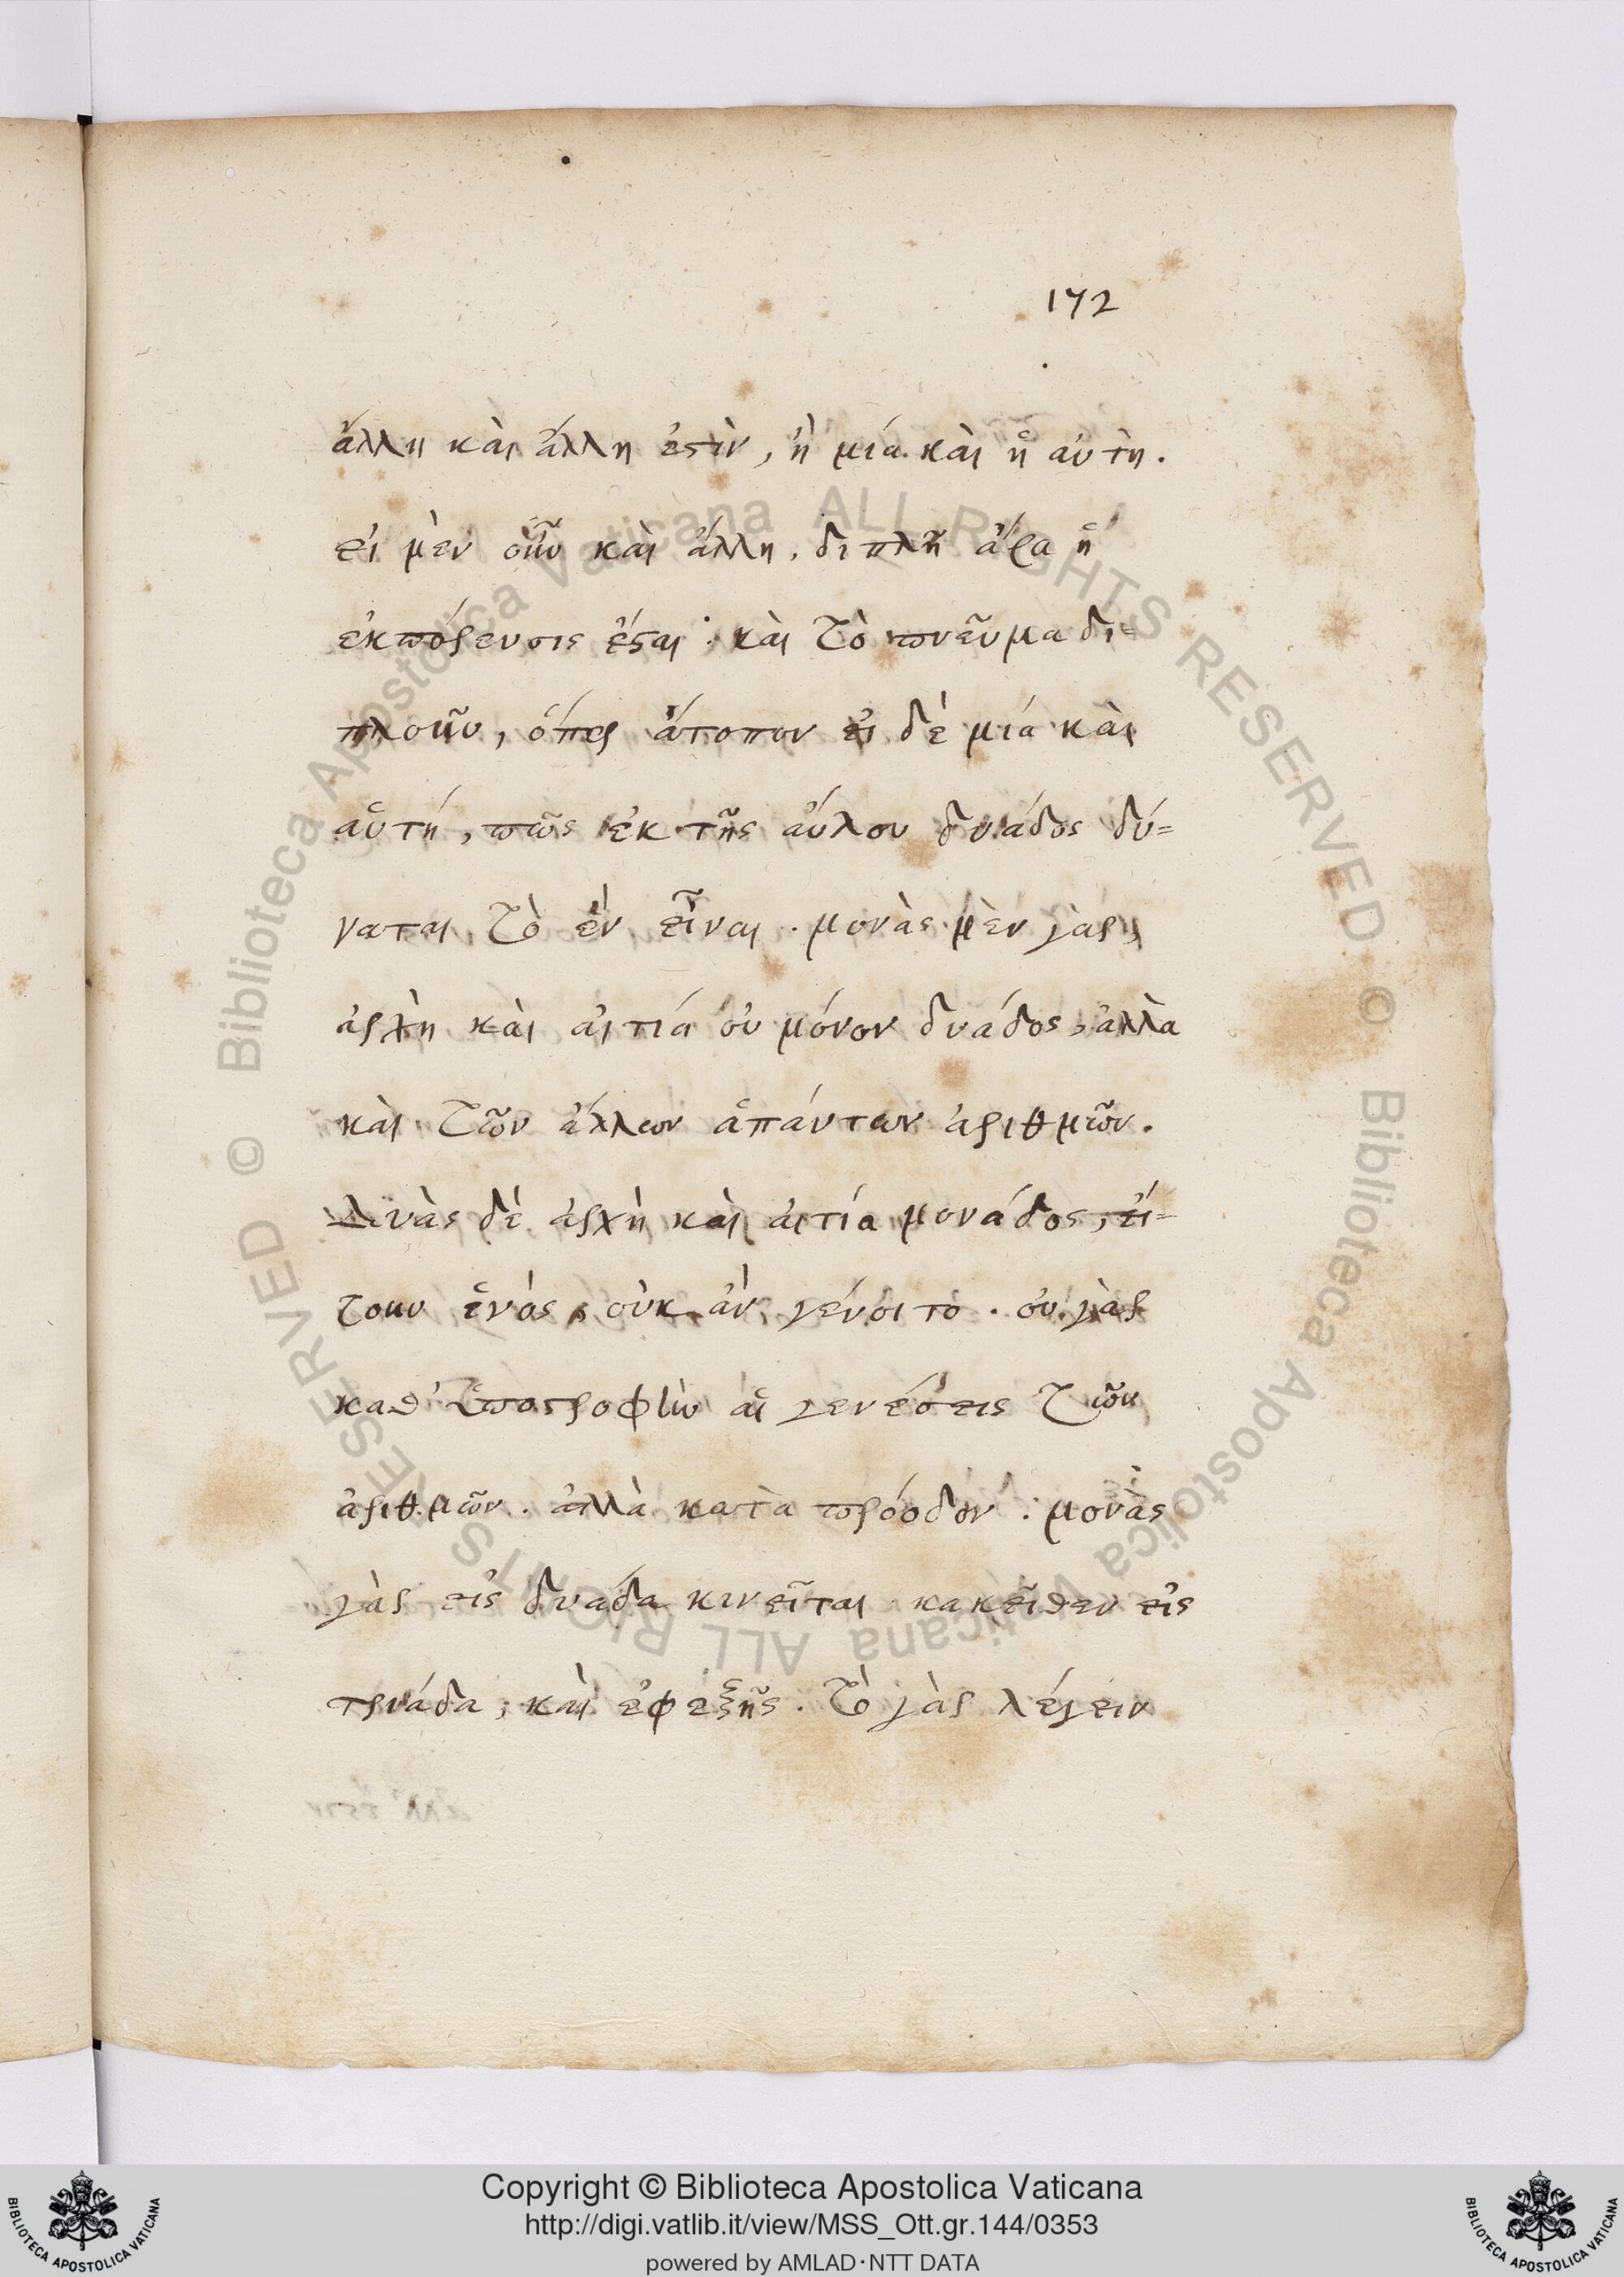 172
ἄλλη καὶ ἄλλη ἐστὶν, ἢ μία καὶ ἡ αὐτὴ.
εἰ μὲν οὖν καὶ ἄλλη, διπλῆ ἄρα ἡ
ἐκπόρευσις ἔσται· καὶ τὸ πνεῦμα δι=
πλοῦν, ὅπερ ἄτοπον εἰ δὲ μία καὶ
αὑτή, πῶς ἐκ τῆς αὐλου δυάδος δύ=
ναται τὸ ἓν εἶναι. μονὰς μὲν γὰρ,
ἀρχὴ καὶ αἰτία οὐ μόνον δυάδος, ἀλλὰ
καὶ τῶν ἄλλων ἁπάντων ἀριθμῶν.
δυὰς δέ ἀρχὴ καὶ αἰτία μονάδος, εἴ=
τουν ἑνός, οὐκ ἂν γένοιτο. οὐ γὰρ
καθ' ὑποστροφὴν αἱ γενέσεις τῶν
ἀριθμῶν. ἀλλὰ κατὰ πρόοδον: μονὰς
γὰρ εἰς δυάδα κινεῖται κακεῖθεν εἰς
τριάδα, καὶ ἐφεξῆς. τὸ γὰρ λέγειν
Copyright © Biblioteca Apostolica Vaticana
http://digi.vatlib.it/view/MSS_Ott.gr.144/0353
powered by AMLAD·NTT DATA
BIBLIOTECA APOSTOLICA VATICANA
BIBLIOTECA APOSTOLICA VATICANA
© Biblioteca Apostolica Vaticana ALL RIGHTS RESERVED
© Biblioteca Apostolica Vaticana ALL RIGHTS RESERVED